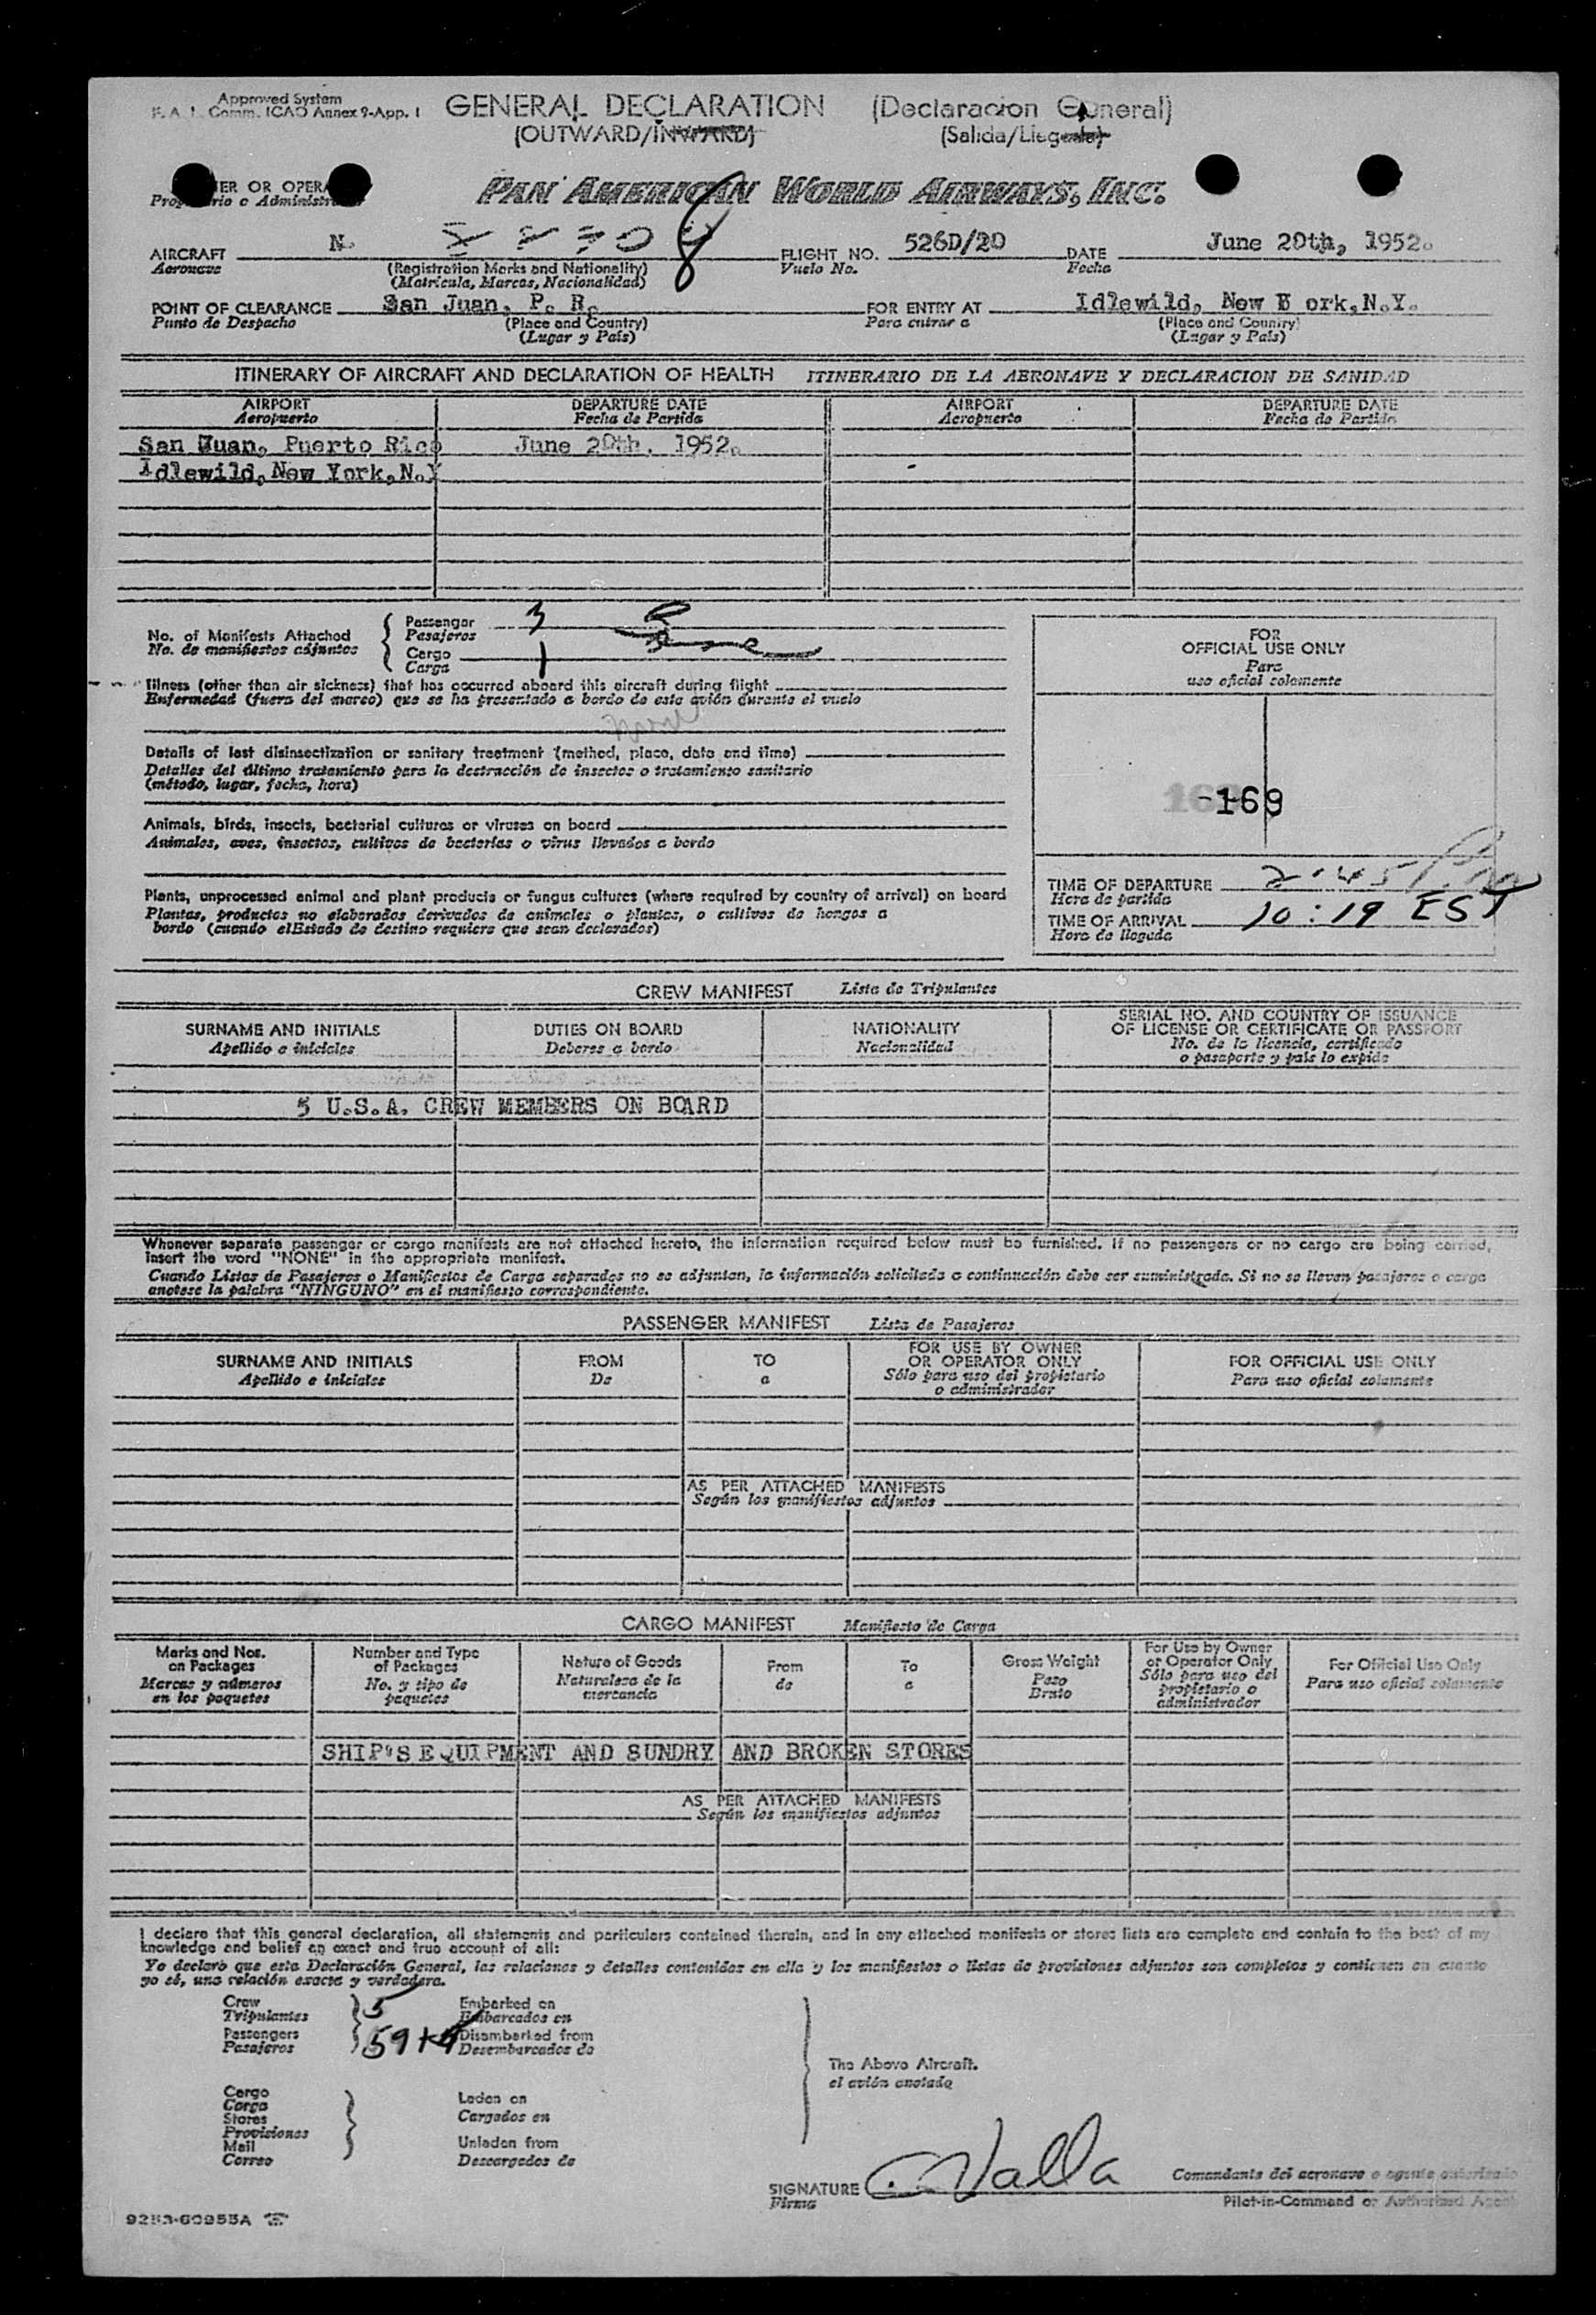 Approved System
F. A. L. Comm. ICAO Annex 9-App. 1
GENERAL DECLARATION (Declaracion General)
(OUTWARD/INWARD) (Salida/Llegada)
OWNER OR OPERATOR
Propietario o Administrador
PAN AMERICAN WORLD AIRWAYS, INC.
AIRCRAFT N. FLIGHT NO. 526D/20 DATE June 20th, 1952.
Aeronave (Registration Marks and Nationality) Vuelo No. Fecha
(Matricula, Marcas, Nacionalidad)
POINT OF CLEARANCE San Juan, P. R. FOR ENTRY AT Idlewild, New E ork,N.Y.
Punto de Despacho (Place and Country) Para entrar a (Place and Country)
(Lugar y País) (Lugar y País)
ITINERARY OF AIRCRAFT AND DECLARATION OF HEALTH ITINERARIO DE LA AERONAVE Y DECLARACION DE SANIDAD
AIRPORT DEPARTURE DATE AIRPORT DEPARTURE DATE
Aeropuerto Fecha de Partida Aeropuerto Fecha de Partida
San Juan, Puerto Rico June 20th, 1952.
Idlewild, New York,N.Y
No. of Manifests Attached
No. de manifiestos adjuntos
Passenger 3
Pasajeros
Cargo 1
Carga
FOR
OFFICIAL USE ONLY
Para
uso oficial solamente
Illness (other than air sickness) that has occurred aboard this aircraft during flight
Enfermedad (fuera del mareo) que se ha presentado a bordo de este avión durante el vuelo
None
Details of last disinsectization or sanitary treatment (method, place, date and time)
Detalles del último tratamiento para la destrucción de insectos o tratamiento sanitario
(método, lugar, fecha, hora)
-169
Animals, birds, insects, bacterial cultures or viruses on board
Animales, aves, insectos, cultivos de bacterias o virus llevados a bordo
Plants, unprocessed animal and plant products or fungus cultures (where required by country of arrival) on board
Plantas, productos no elaborados derivados de animales o plantas, o cultivos de hongos a
bordo (cuando elEstado de destino requiera que sean declarados)
TIME OF DEPARTURE 2:45 P.M
Hora de partida
TIME OF ARRIVAL 10:19 EST
Hora de llegada
CREW MANIFEST Lista de Tripulantes
SURNAME AND INITIALS DUTIES ON BOARD NATIONALITY SERIAL NO. AND COUNTRY OF ISSUANCE
OF LICENSE OR CERTIFICATE OR PASSPORT
Apellido e iniciales Deberes a bordo Nacionalidad No. de la licencia, certificado
o pasaporte y país lo expide
5 U.S.A. CREW MEMBERS ON BOARD
Whenever separate passenger or cargo manifests are not attached hereto, the information required below must be furnished. If no passengers or no cargo are being carried,
insert the word "NONE" in the appropriate manifest.
Cuando Listas de Pasajeros o Manifiestos de Carga separados no se adjuntan, la información solicitada a continuación debe ser suministrada. Si no se lleven pasajeros o carga
anotese la palabra "NINGUNO" en el manifiesto correspondiente.
PASSENGER MANIFEST Lista de Pasajeros
SURNAME AND INITIALS FROM TO FOR USE BY OWNER
OR OPERATOR ONLY FOR OFFICIAL USE ONLY
Apellido e iniciales De a Sólo para uso del propietario
o administrador Para uso oficial solamente
AS PER ATTACHED MANIFESTS
Según los manifiestos adjuntos
CARGO MANIFEST Manifiesto de Carga
Marks and Nos.
on Packages
Marcas y números
en los paquetes
Number and Type
of Packages
No. y tipo de
paquetes
Nature of Goods
Naturaleza de la
mercancia
From
de
To
a
Gross Weight
Peso
Bruto
For Use by Owner
or Operator Only
Sólo para uso del
propietario o
administrador
For Official Use Only
Para uso oficial solamente
SHIP'S EQUIPMENT AND SUNDRY AND BROKEN STORES
AS PER ATTACHED MANIFESTS
Según los manifiestos adjuntos
I declare that this general declaration, all statements and particulars contained therein, and in any attached manifests or stores lists are complete and contain to the best of my
knowledge and belief an exact and true account of all:
Yo declaro que esta Declaración General, las relaciones y detalles contenidos en ella y los manifiestos o listas de provisiones adjuntos son completos y contienen en cuanto
yo sé, una relación exacta y verdadera.
Crew 5 Embarked on
Tripulantes Embarcados en
Passengers 59+4 Disembarked from
Pasajeros Desembarcados de
The Above Aircraft.
el avión anotado
Cargo
Carga
Stores
Provisiones
Mail
Correo
Laden on
Cargados en
Unladen from
Descargados de
SIGNATURE
Firma
Comandante del aeronave o agente autorizado
Pilot-in-Command or Authorized Agent